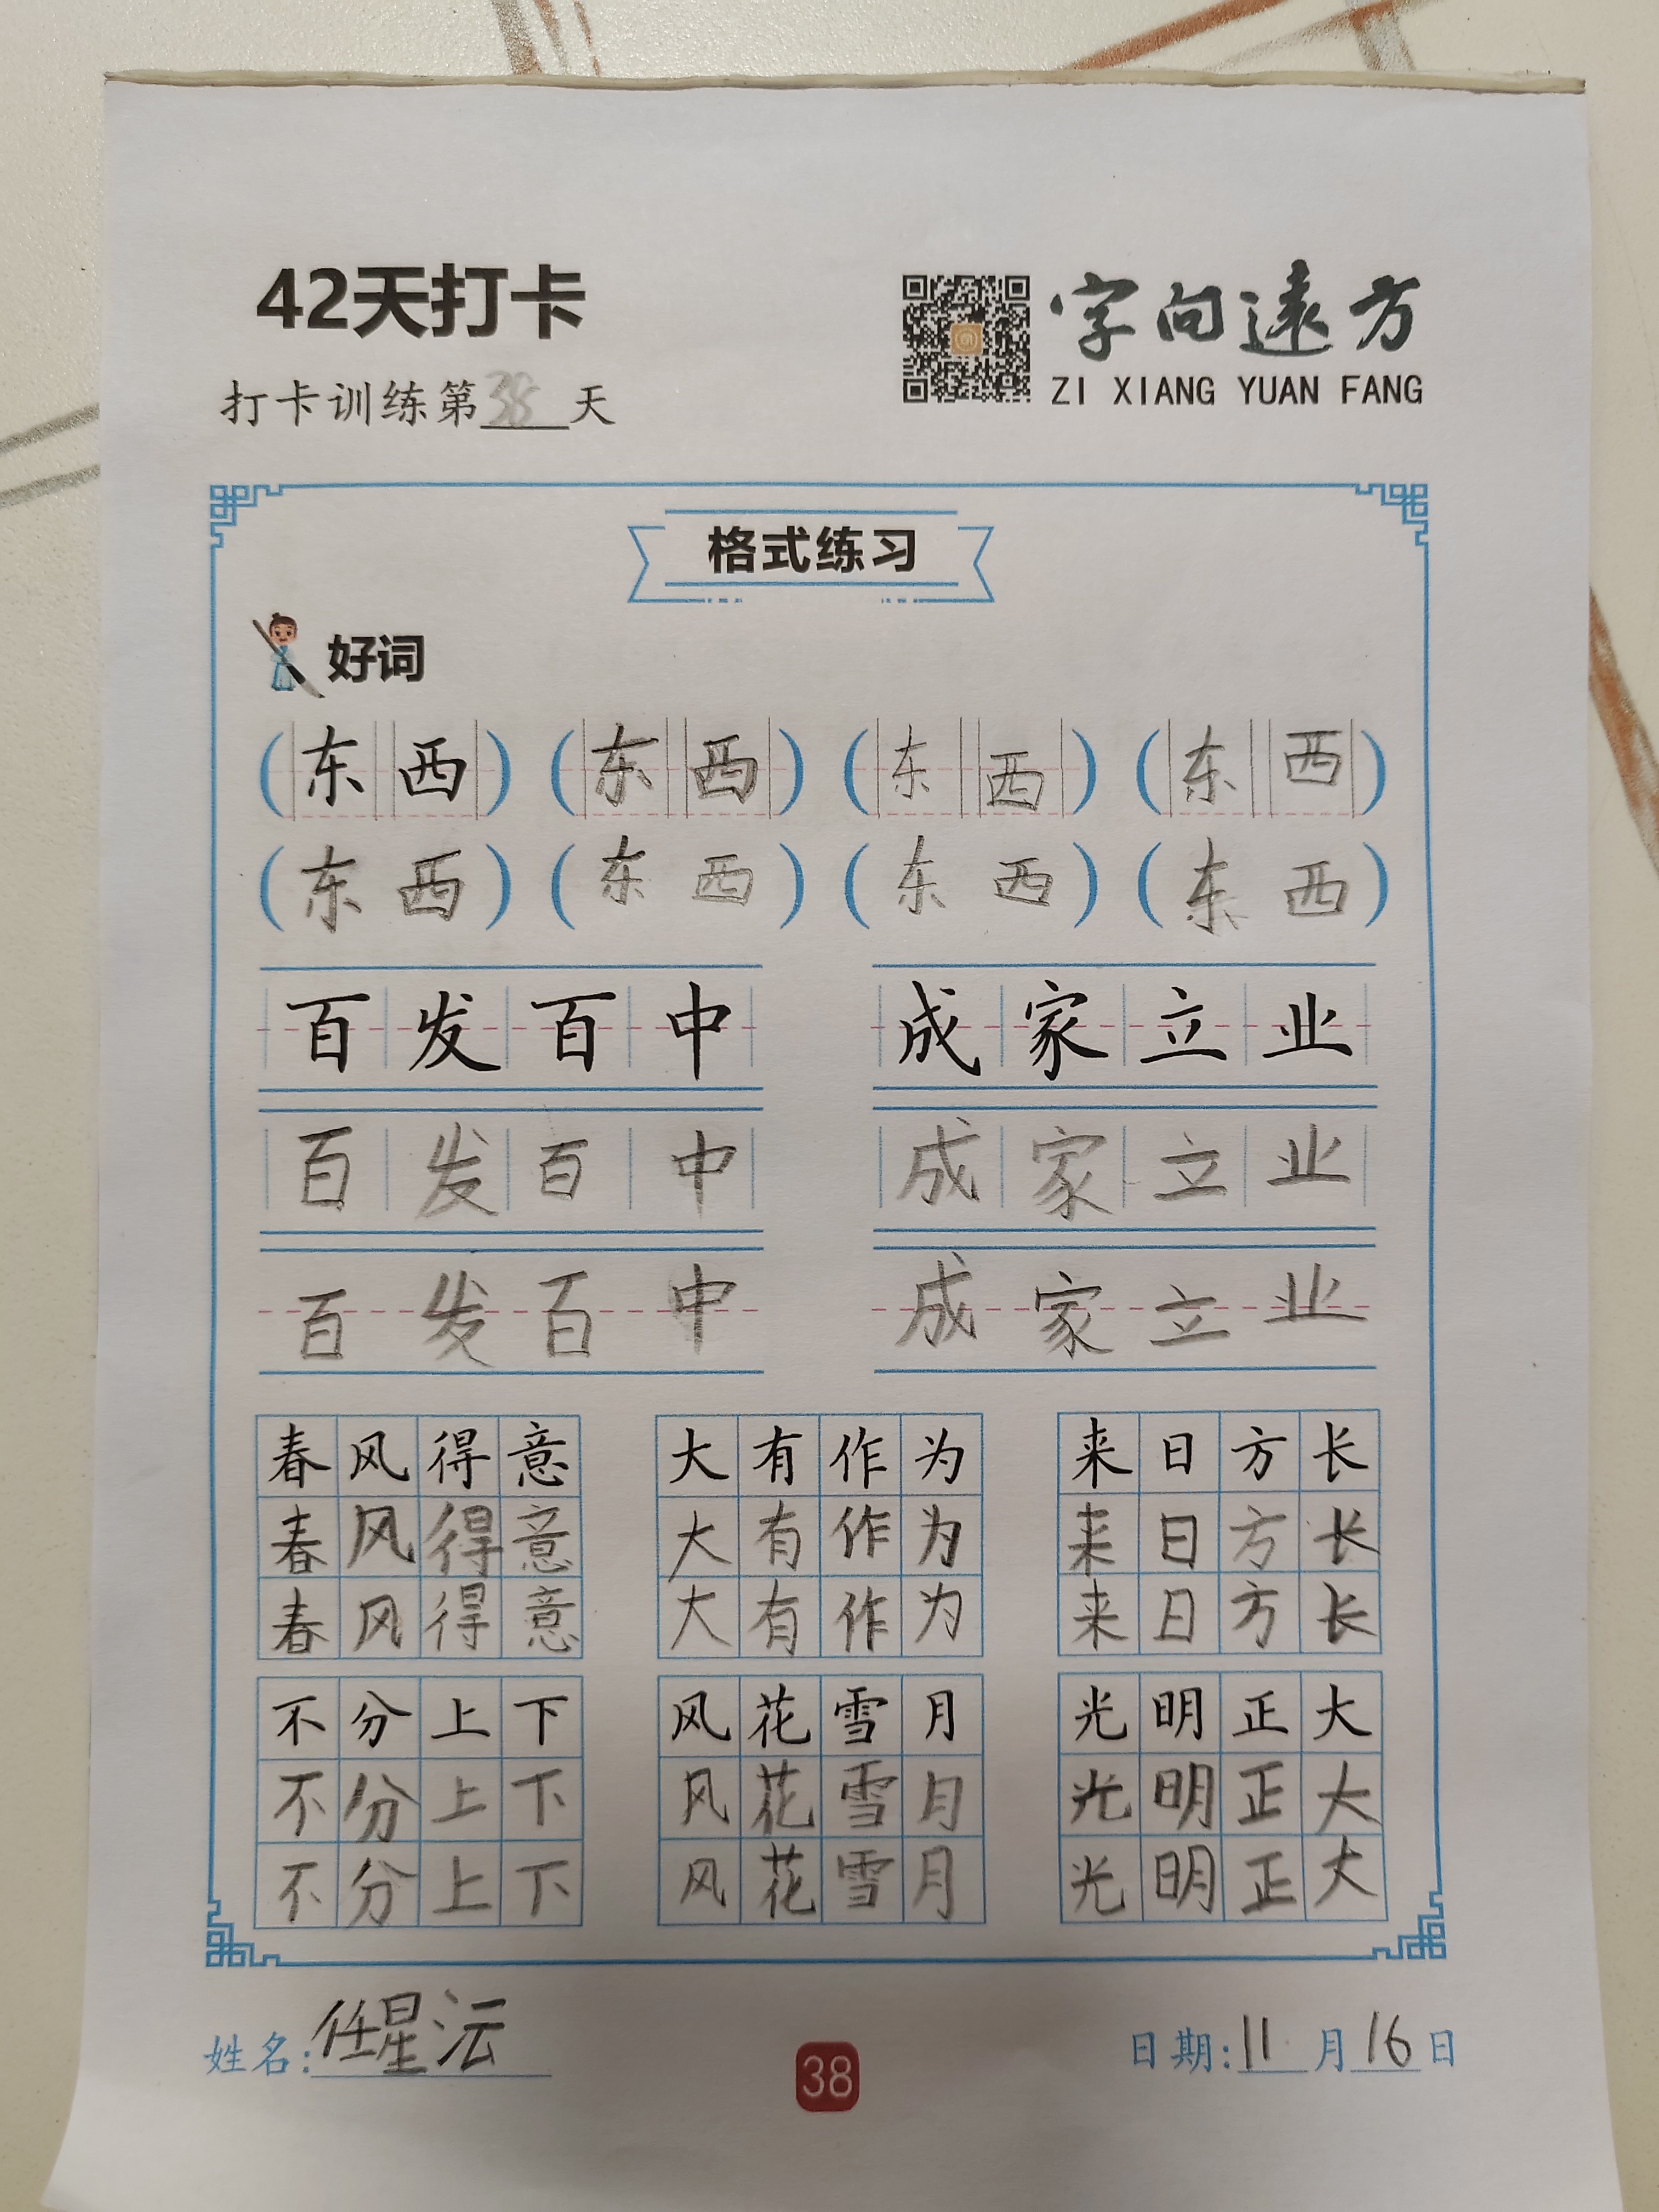 42天打卡
字向遠方
ZI XIANG YUAN FANG
打卡训练第38天
格式练习
好词
(东西) (东西) (东西) (东西)
(东西) (东西) (东西) (东西)
百发百中 成家立业
百发百中 成家立业
百发百中 成家立业
春风得意 大有作为 来日方长
春风得意 大有作为 来日方长
春风得意 大有作为 来日方长
不分上下 风花雪月 光明正大
不分上下 风花雪月 光明正大
不分上下 风花雪月 光明正大
姓名:任星沄 38 日期:11月16日